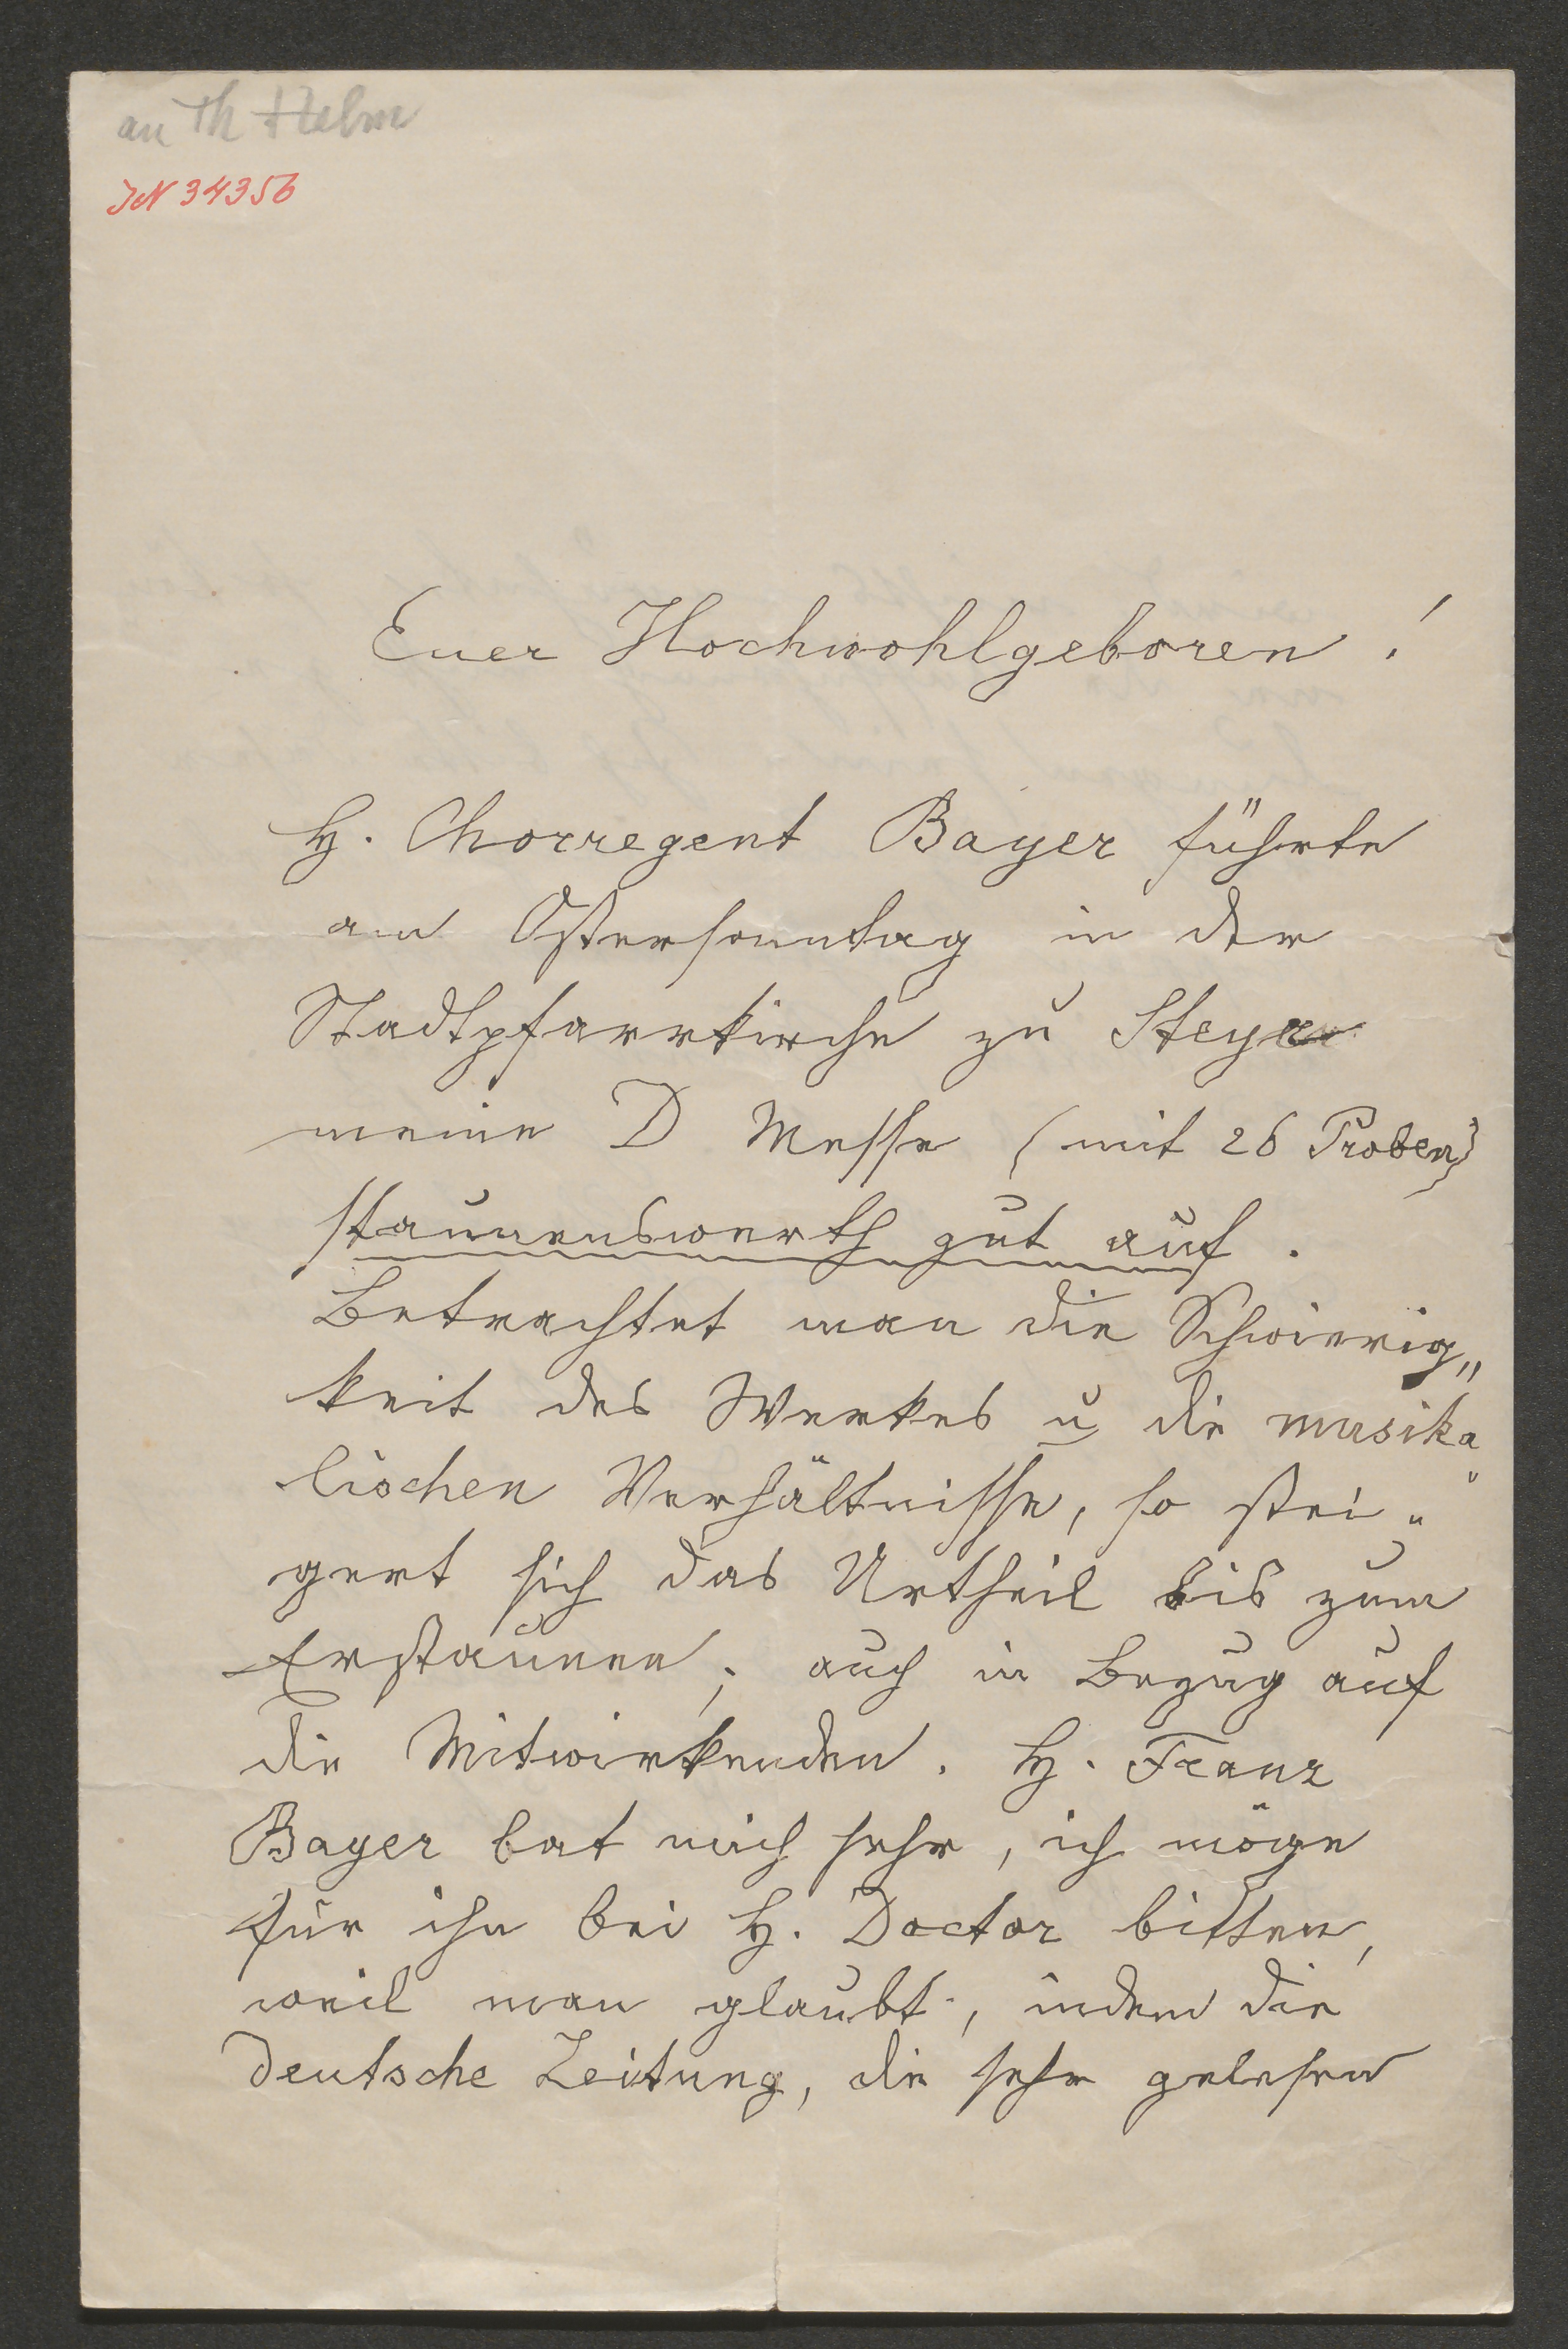 an Th Helm
IN 34356
Euer Hochwohlgeboren!
H. Chorregent Bayer führte
am Ostersonntag in der
Stadtpfarrkirche zu Steyr
meine D Messe (mit 26 Proben)
staunenswerth gut auf.
Betrachtet man die Schwierig„
keit des Werkes u die musika„
lischen Verhältnisse, so stei„
gert sich das Urtheil bis zum
Erstaunen; auch in Bezug auf
die Mitwirkenden. H. Franz
Bayer bat mich sehr, ich möge
für ihn bei H. Doctor bitten,
weil man glaubt, indem die
Deutsche Zeitung, die sehr gelesen